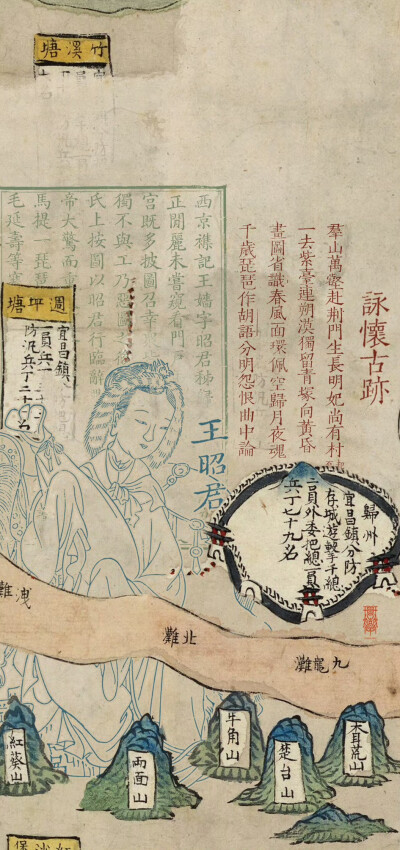 竹溪塘
詠懷古跡
羣山萬壑赴荆門生長明妃尚有村
一去紫臺連朔漠獨留青塚向黃昏
畫圖省識春風面環佩空歸月夜魂
千歲琵琶作胡語分明怨恨曲中論
西京襍記王嬙字昭君秭
正閒麗未嘗窺看門
宮既多披圖召幸
獨不與工乃惡圖
氏上按圖以昭君行臨辭
帝大驚而
馬提一琵琶
毛延壽等
王昭君
週坪塘
宜昌鎮
員兵一
防汛兵丁二十
名
歸州
宜昌鎮分防
存城遊擊千總
二員外委把總一員
兵丁七十九名
九龍灘
北灘
洩灘
荒山
楚台山
牛角山
兩面山
紅葵山